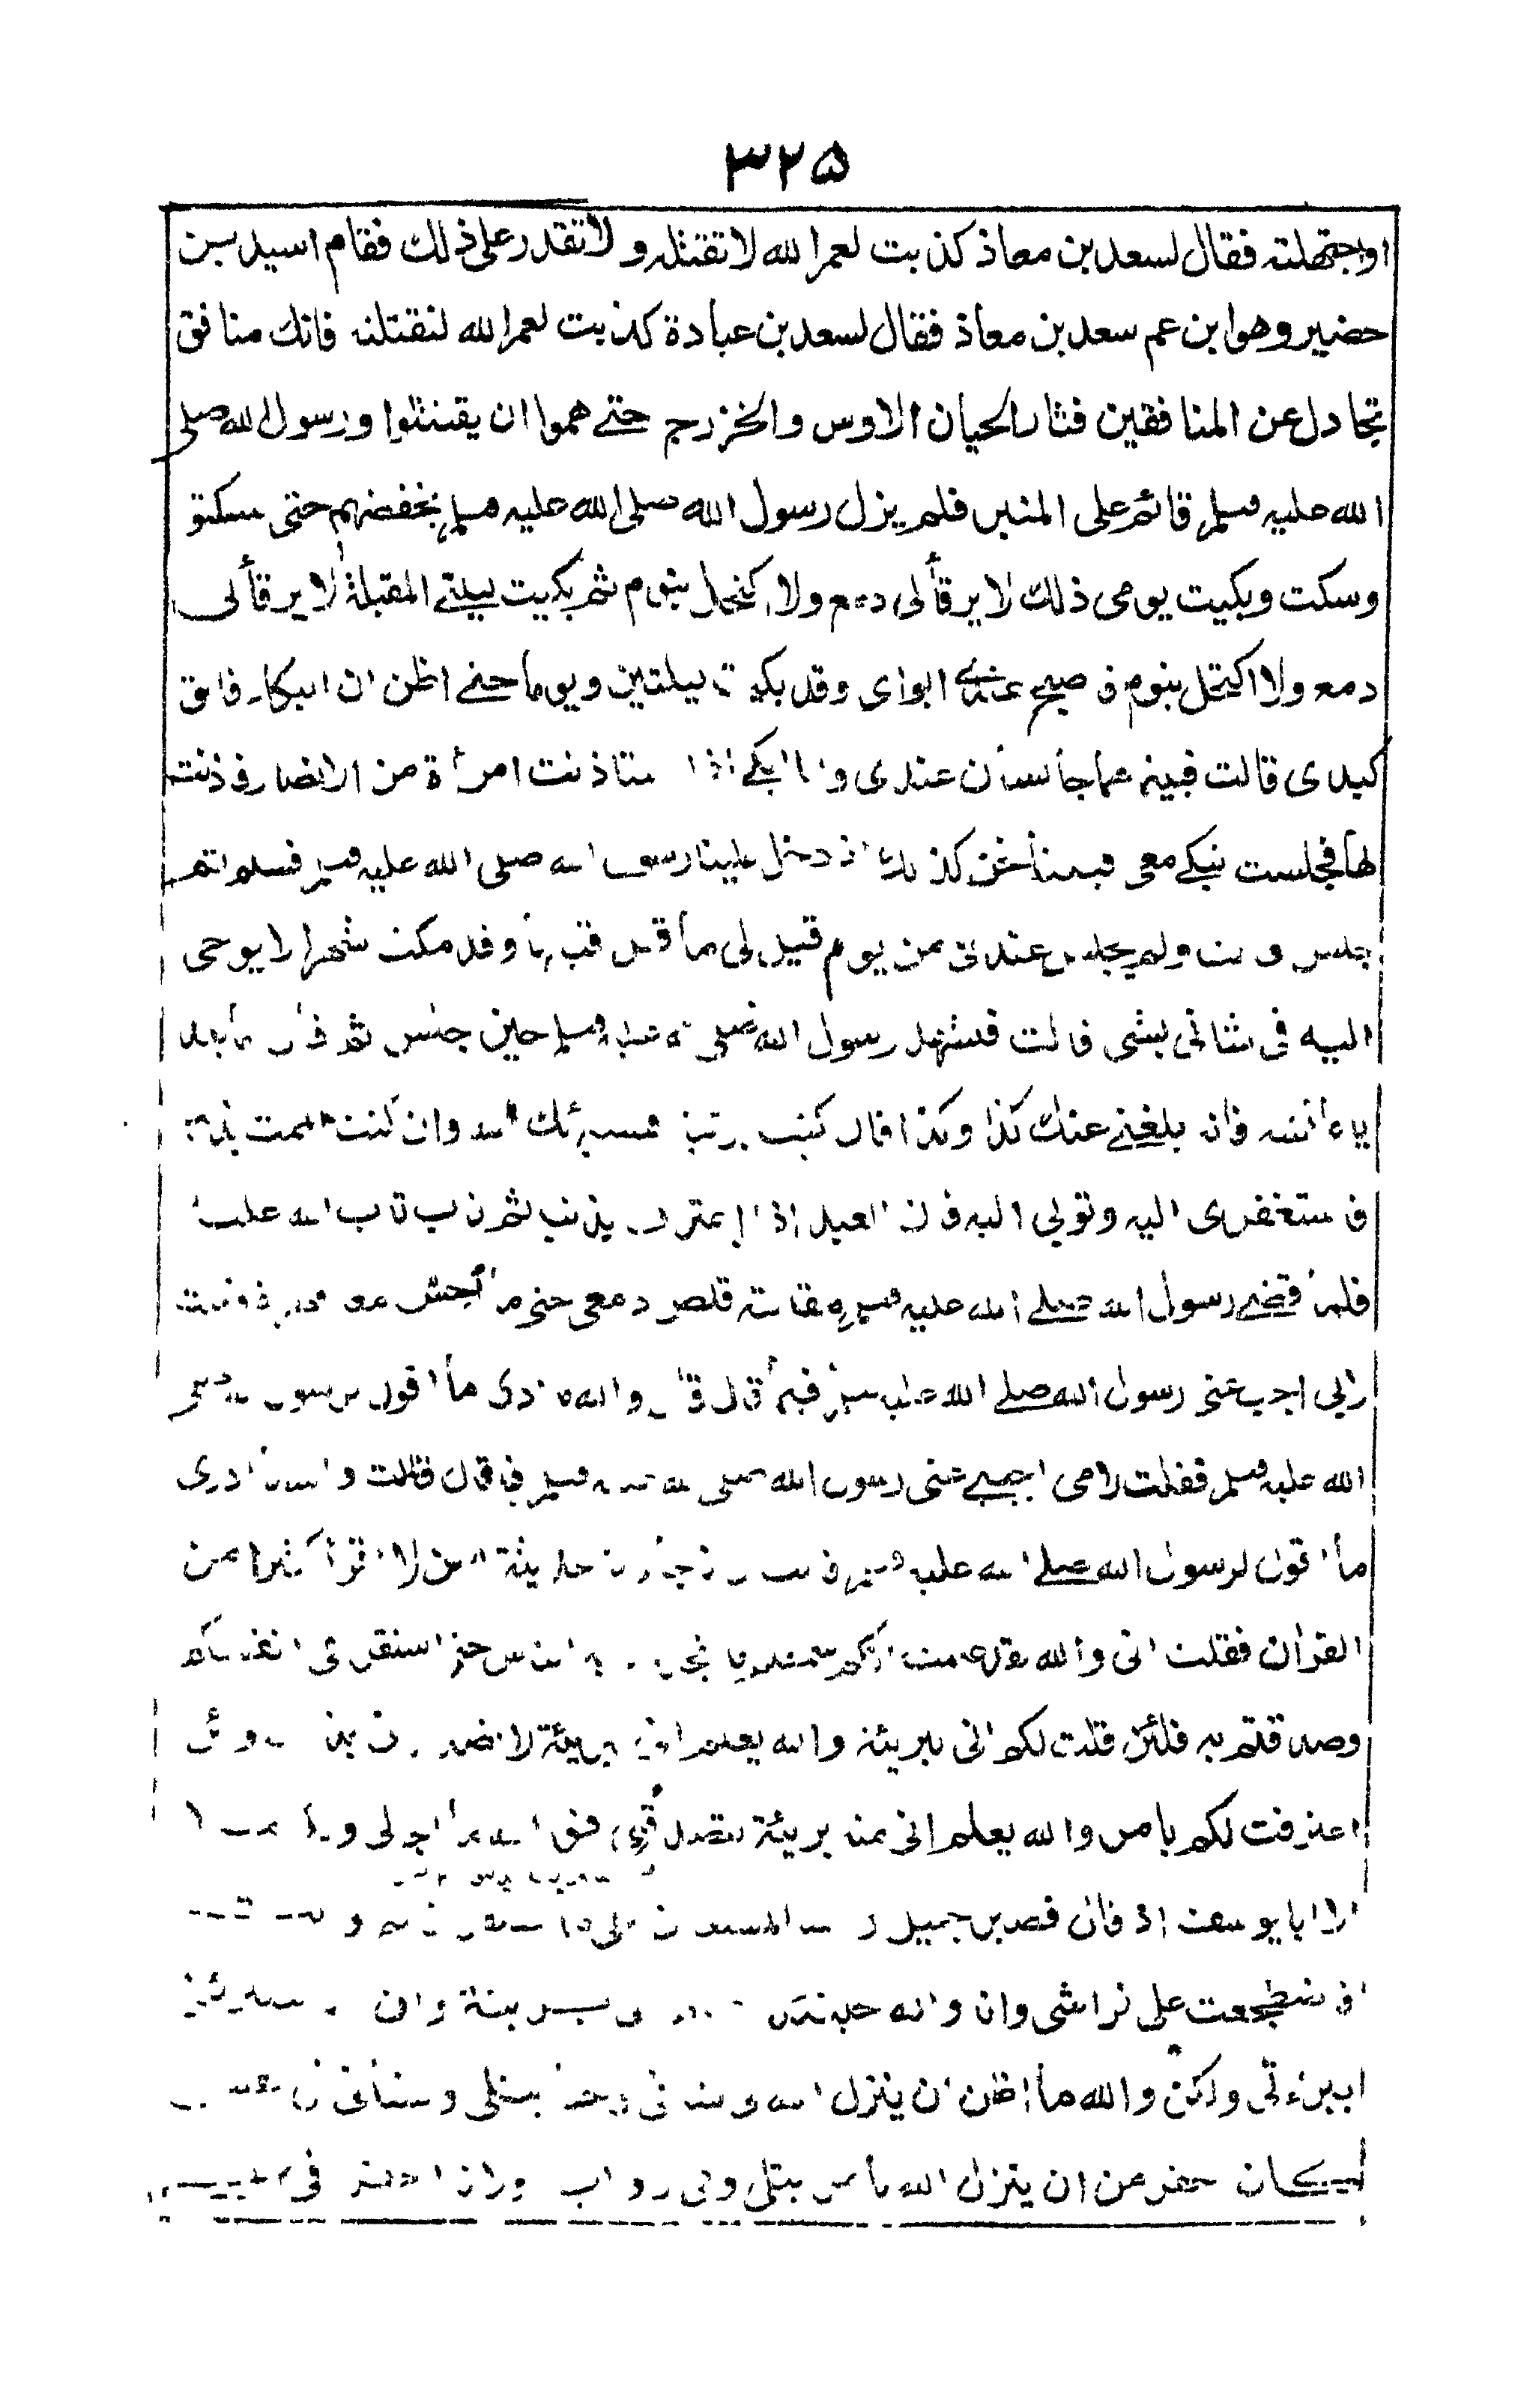 ٣٢۵
او اجتهلته فقال لسعد بن معاذ كذبت لعمر الله لا تقتله ولا تقدر على ذلك فقام اسيد بن
حضير وهو ابن عم سعد بن معاذ فقال لسعد بن عبادة كذبت لعمر الله لنقتلنه فانك منافق
تجادل عن المنافقين فثار الحيان الاوس والخزرج حتى هموا ان يقتتلوا ورسول الله صلى
الله عليه وسلم قائم على المنبر فلم يزل رسول الله صلى الله عليه وسلم يخفضهم حتى سكتو
وسكت وبكيت يومى ذلك لا يرقأ لى دمع ولا اكتحل بنوم ثم بكيت ليلتى المقبلة لا يرقأ لى
دمع ولا اكتحل بنوم فاصبح عندى ابواى وقد بكيت ليلتين ويوما حتى اظن ان البكاء فالق
كبدى قالت فبينما هما جالسان عندى وانا ابكى اذا ستاذنت امرأة من الانصار فاذنت
لها فجلست تبكى معى فبينا نحن كذلك اذ دخل علينا رسول الله صلى الله عليه وسلم فسلم ثم
جلس قالت ولم يجلس عندى من يوم قيل لى ما قيل قبلها وقد مكث شهرا لا يوحى
اليه فى شانى بشى قالت فتشهد رسول الله صلى الله عليه وسلم حين جلس ثم قال اما بعد
يا عائشه فانه بلغنى عنك كذا وكذا فان كنت بريئة فسيبرئك الله وان كنت الممت بذنب
فاستغفرى اليه وتوبى اليه فان العبد اذا اعترف بذنب ثم تاب تاب الله عليه
فلما قضى رسول الله صلى الله عليه وسلم مقالته قلص دمعى حتى ما احس منه قطرة فقلت
لابى اجب عنى رسول الله صلى الله عليه وسلم فيما قال قال والله ما ادرى ما اقول لرسول الله صلى
الله عليه وسلم فقلت لامى اجيبى عنى رسول الله صلى الله عليه وسلم فيما قال قالت والله ما ادرى
ما اقول لرسول الله صلى الله عليه وسلم قالت وانا جارية حديثة السن لا اقرأ كثيرا من
القران فقلت انى والله لقد علمت انكم سمعتم ما تحدث به الناس حتى استقر فى انفسكم
وصدقتم به فلئن قلت لكم انى لبريئة والله يعلم انى بريئة لا
اعترفت لكم بامر والله يعلم انى منه بريئة لتصدقنى فوالله ما اجد لى ولكم مثلا
الا ابا يوسف اذ قال فصبر جميل والله المستعان على ما تصفون ثم
فاضطجعت على فراشى وانا والله حينئذ بريئة وان
ببراءتى ولكن والله ما اظن ان ينزل الله فى شانى وحيا يتلى ولشانى
كان احقر من ان ينزل الله بامر يتلى وفى رواية ولانا احقر فى